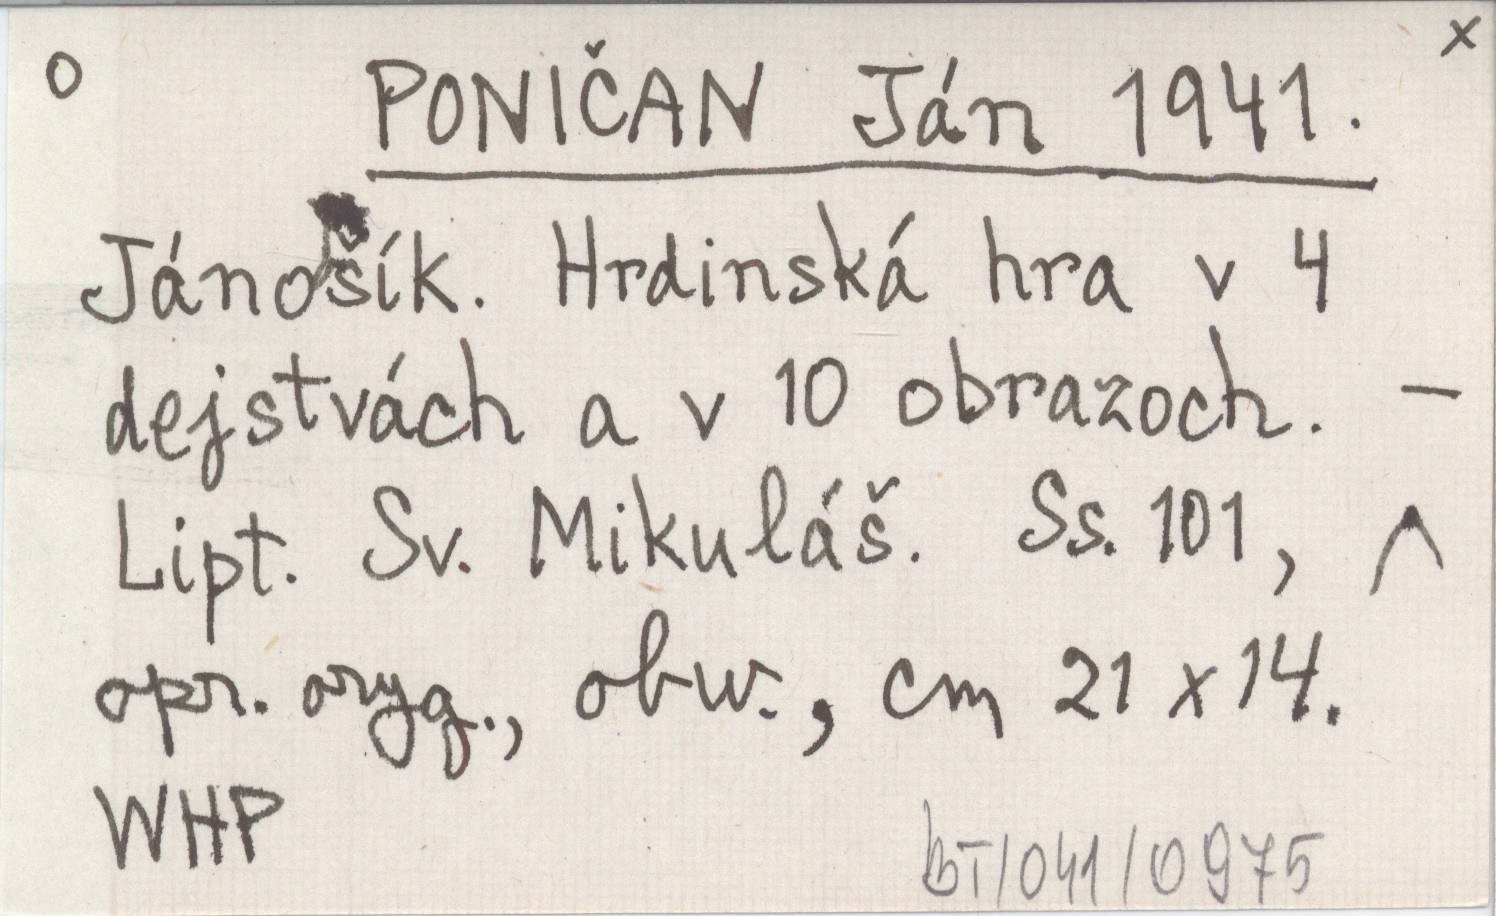 O
x
PONIČAN Ján 1941.
Jánošík. Hrdinská hra v 4
dejstvách a v 10 obrazoch. –
Lipt. Sv. Mikuláš. Ss. 101, ^
opr. oryg., obw., cm 21 x 14.
WHP
bT/041/0975